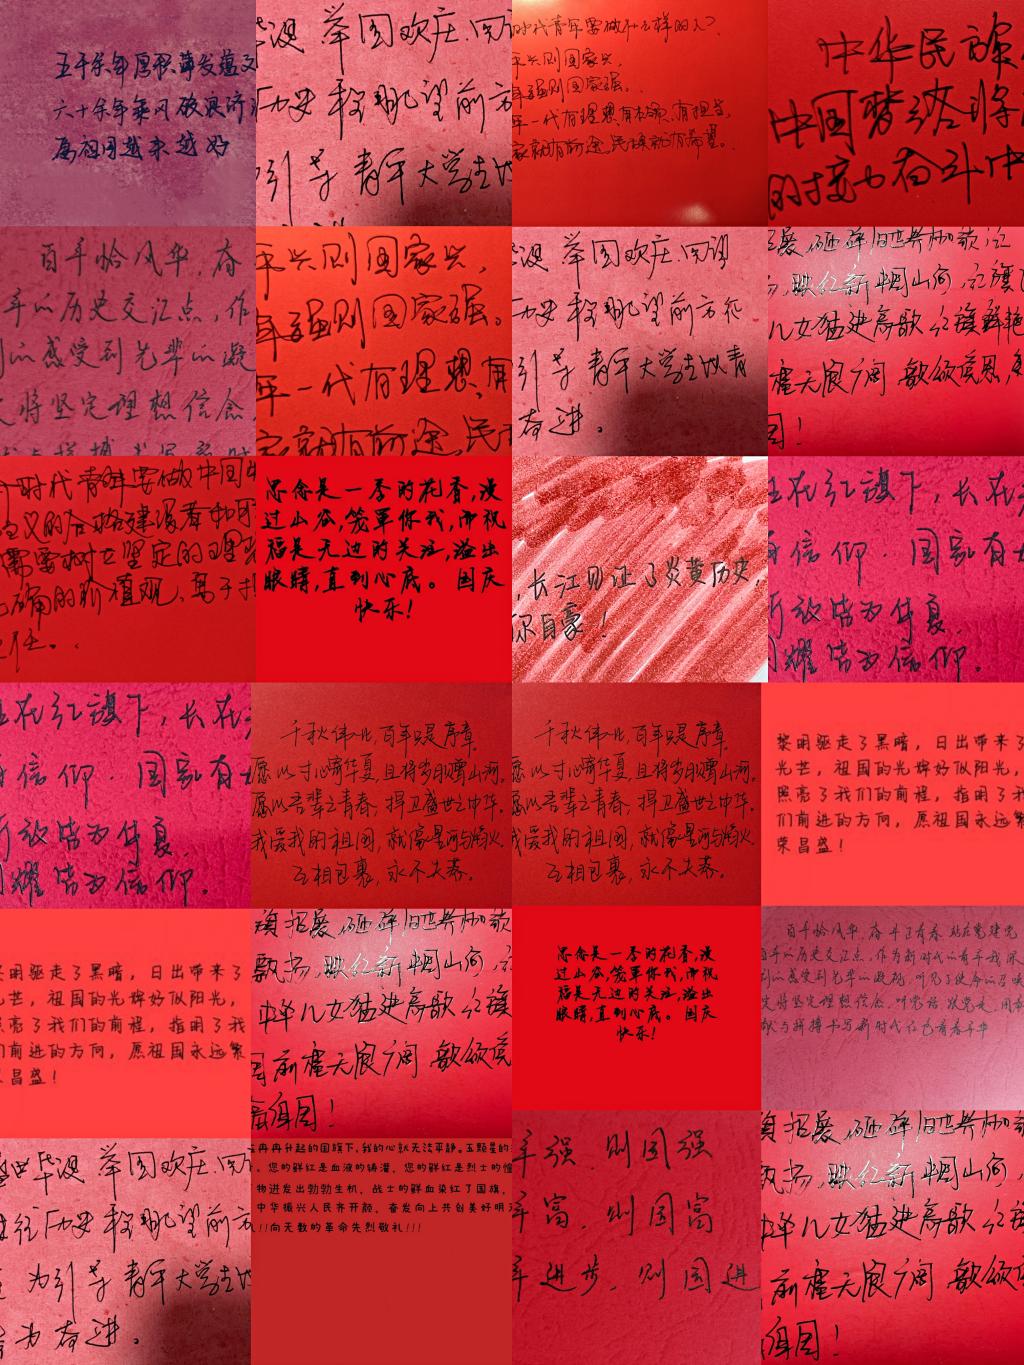 五千余年厚积薄发蕴文
六十余年乘风破浪济
为祖国越来越好
举国欢庆.回
眺望前方
引导青年大学生
时代青年要做什么样的人?
年兴则国家兴,
年强则国家强。
年一代有理想,有本领,有担当,
家就有前途,民族就有希望。
中华民族
中国梦终将
的接力奋斗中
百年恰风华,奋
年的历史交汇点,作
的感受到先辈的凝
将坚定理想信念
年兴则国家兴,
年强则国家强。
年一代有理想,有
家就有前途,民
举国欢庆.回
眺望前方
引导青年大学生以青
奋进。
展,砸碎旧世界枷锁
映红新中国山河,红旗
儿女猛进高歌,红旗鲜艳
前程天浪广阔
国!
时代青年要做中国
义的合格建设者和
需要树立坚定的理
正确的价值观,勇于
任。
思念是一季的花香,漫
过山瓜,笼罩你我,而祝
福是无边的关注,溢出
眼睛,直到心底。国庆
快乐!
,长江见证了炎黄历史,
你自豪!
在红旗下,长在
信仰.国家有
所致皆为华夏.
闪耀皆为信仰.
在红旗下,长在
信仰.国家有
所致皆为华夏.
闪耀皆为信仰.
千秋伟业,百年只是序章.
愿以寸心寄华夏,且将岁月赠山河.
愿以吾辈之青春,捍卫盛世之中华.
我爱我的祖国,就像星河与烟火
互相包裹,永不失春.
千秋伟业,百年只是序章.
愿以寸心寄华夏,且将岁月赠山河.
愿以吾辈之青春,捍卫盛世之中华.
我爱我的祖国,就像星河与烟火
互相包裹,永不失春.
黎明驱走了黑暗,日出带来了
光芒,祖国的光辉好似阳光,
照亮了我们的前程,指明了我
们前进的方向,愿祖国永远繁
荣昌盛!
明驱走了黑暗,日出带来了
芒,祖国的光辉好似阳光,
亮了我们的前程,指明了我
们前进的方向,愿祖国永远繁
昌盛!
旗招展,砸碎旧世界枷锁
飘扬,映红新中国山河,
中华儿女猛进高歌,红旗
国前程天浪广阔
祖国!
思念是一季的花香,漫
过山瓜,笼罩你我,而祝
福是无边的关注,溢出
眼睛,直到心底。国庆
快乐!
百年恰风华,奋斗正青春.站在党建党
百年的历史交汇点,作为新时代的青年我深
的感受到先辈的凝视,听见了使命的召唤
将坚定理想信念,听党话,跟党走,用
与拼搏书写新时代
举国欢庆.回
眺望前方
为引导青年大学生
为奋进。
冉冉升起的国旗下,我的心就无法平静。五颗星的
。您的鲜红是血液的铸灌,您的鲜红是烈士的
物迸发出勃勃生机,战士的鲜血染红了国旗,
中华振兴人民齐开颜,奋发向上共创美好明
!!向无数的革命先烈敬礼!!!
年强,则国强
年富,则国富
年进步,则国进
旗招展,砸碎旧世界枷锁
飘扬,映红新中国山河,
中华儿女猛进高歌,红
前程天浪广阔
祖国!